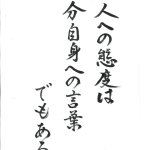 人への態度は
分自身への言葉
でもある